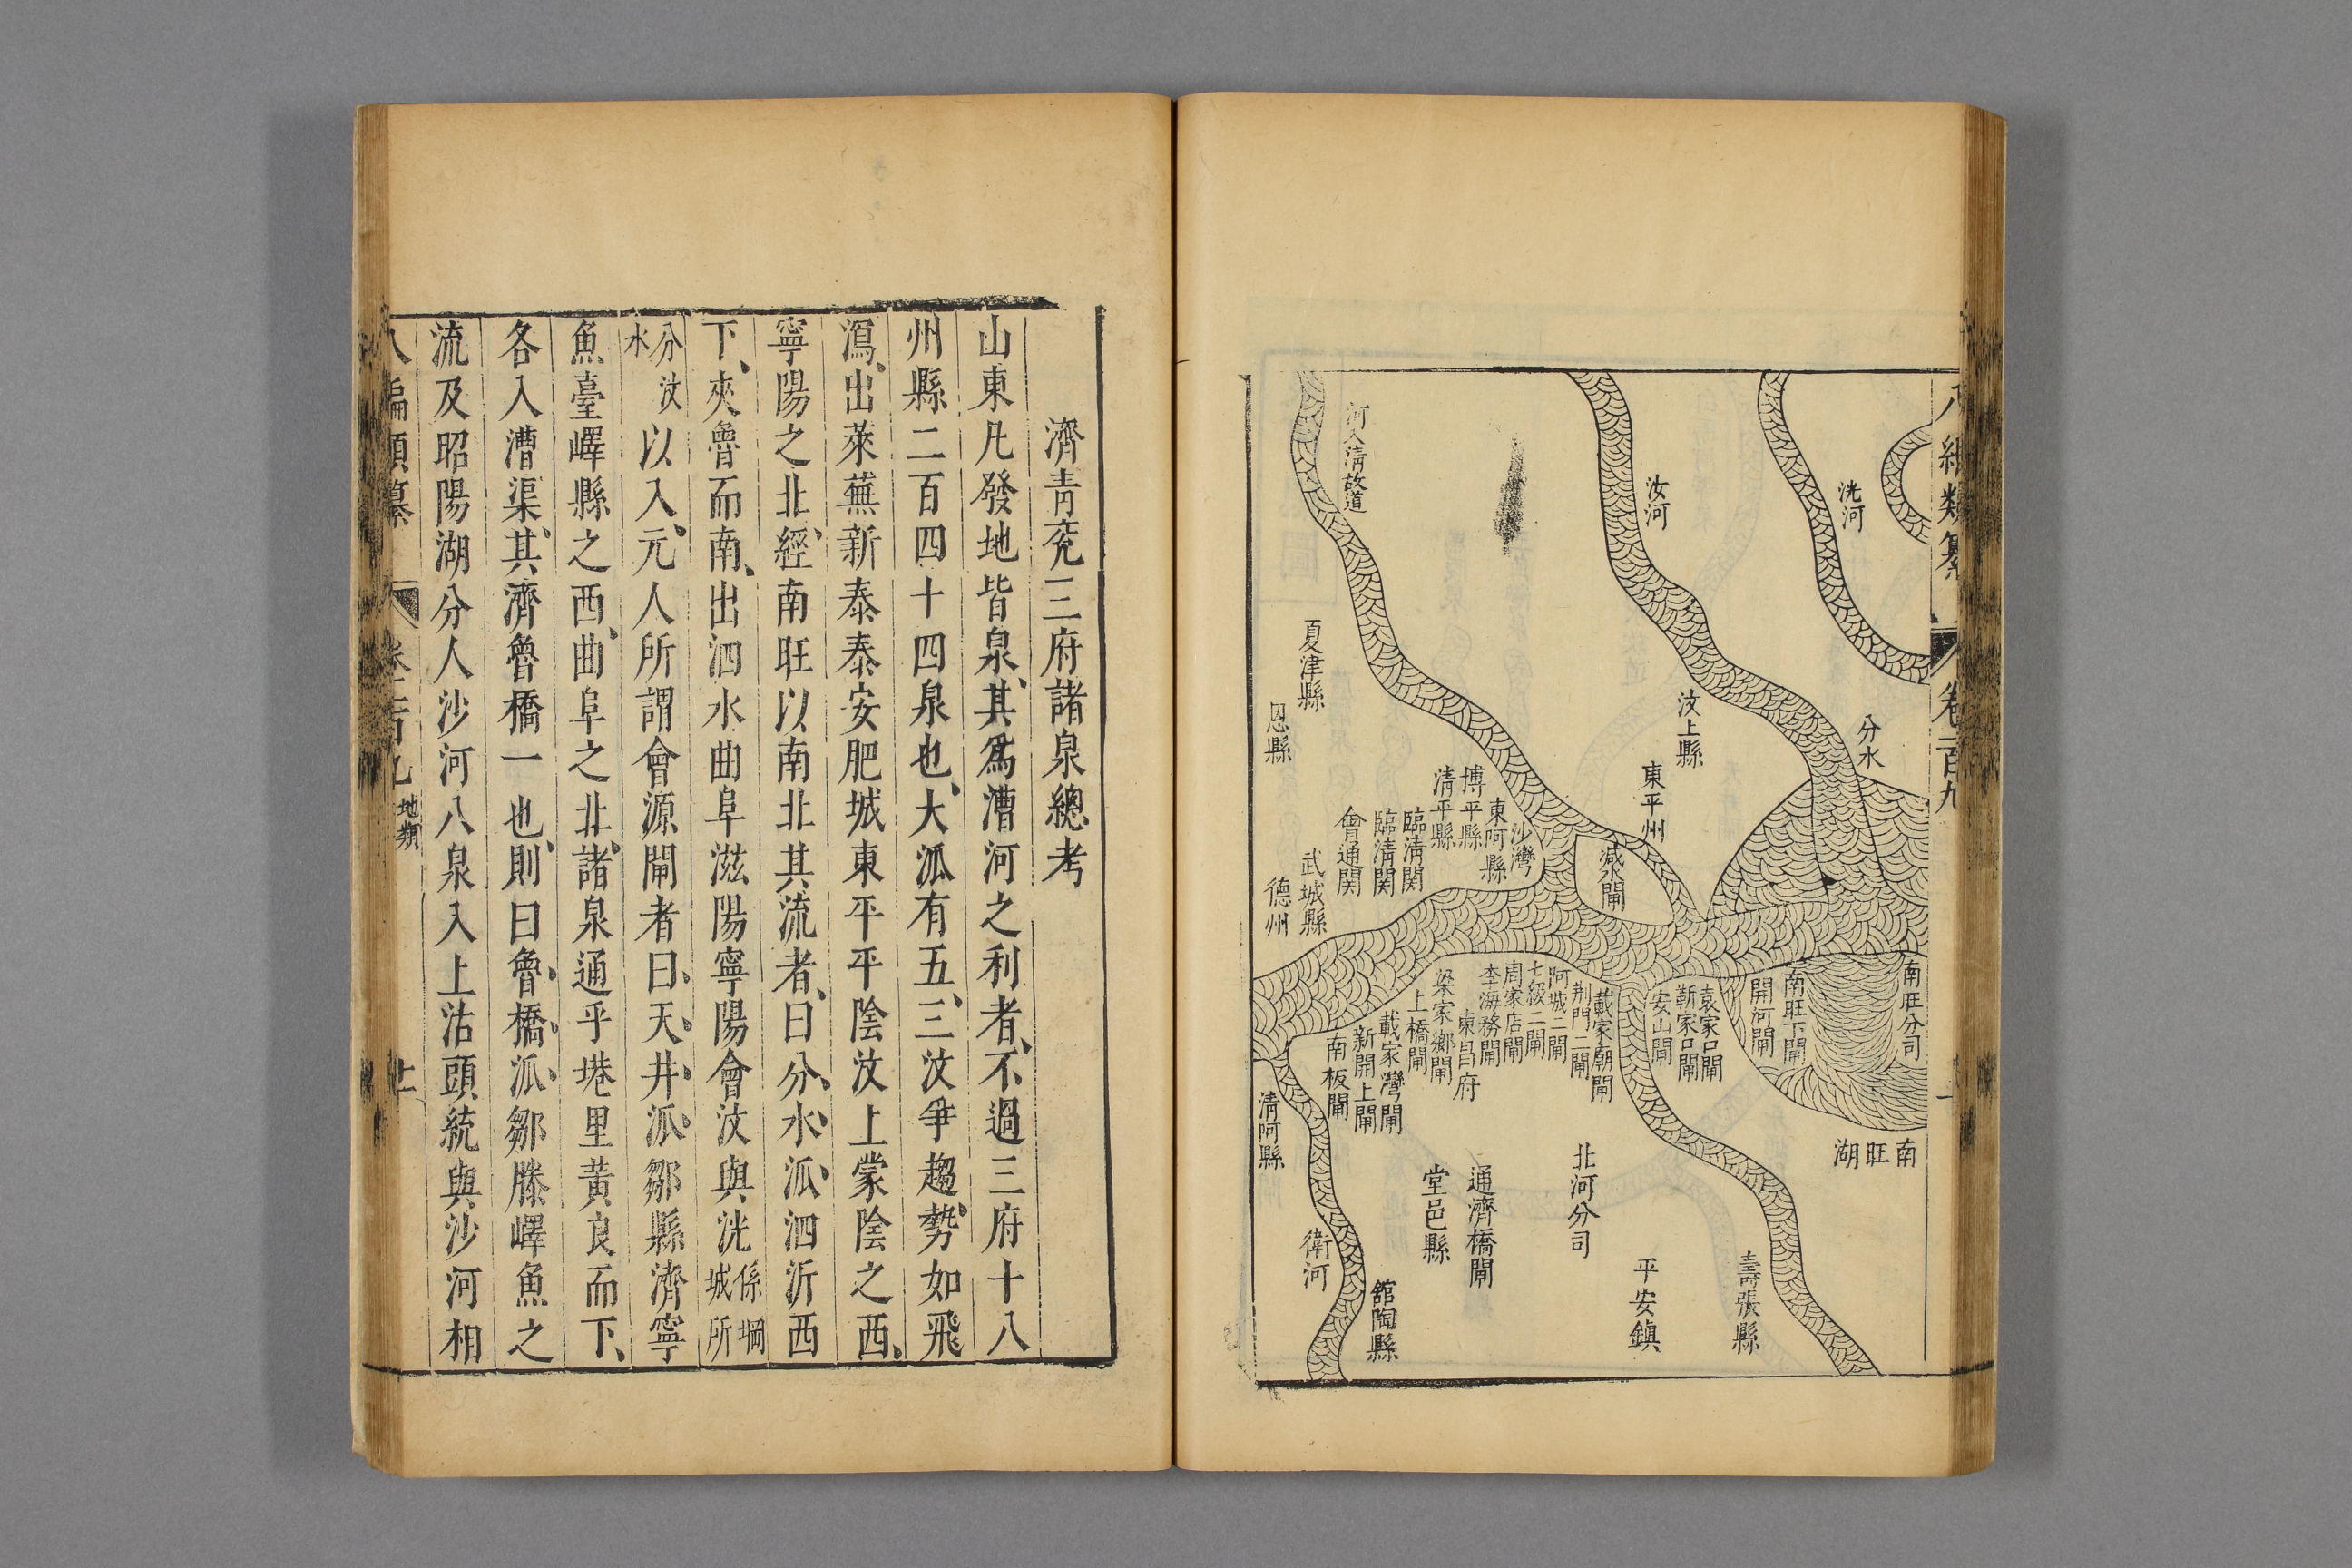 八編類纂 卷一百九
洸河
分水
汝河
汶上縣
東平州
減水閘
河入清故道
沙灣
東阿縣
博平縣
清平縣
臨清関
臨清関
會通関
夏津縣
恩縣
武城縣
德州
南旺分司
南旺下閘
開河閘
袁家口閘
靳家口閘
安山閘
戴家廟閘
荆門二閘
阿城二閘
七級二閘
周家店閘
李海務閘
東昌府
梁家鄉閘
上橋閘
戴家灣閘
新開上閘
南板閘
清阿縣
南旺湖
壽張縣
平安鎮
北河分司
通濟橋閘
堂邑縣
舘陶縣
衛河
濟青兖三府諸泉總考
山東凡發地皆泉、其爲漕河之利者、不過三府十八
州縣二百四十四泉也、大泒有五、三汶爭趨、勢如飛
瀉、出萊蕪新泰泰安肥城東平平陰汶上蒙陰之西、
寧陽之北、經南旺以南北其流者、曰分水泒、泗沂西
下、夾魯而南、出泗水曲阜滋陽寧陽會汶與洸係堈城所
分汶水以入、元人所謂會源閘者、曰天井泒、鄒縣濟寧
魚臺嶧縣之西、曲阜之北、諸泉通乎塂里黃良而下、
各入漕渠、其濟魯橋一也、則曰魯橋泒、鄒滕嶧魚之
流及昭陽湖分人沙河八泉入上沽頭統與沙河相
八編類纂 卷一百九 地類 十一